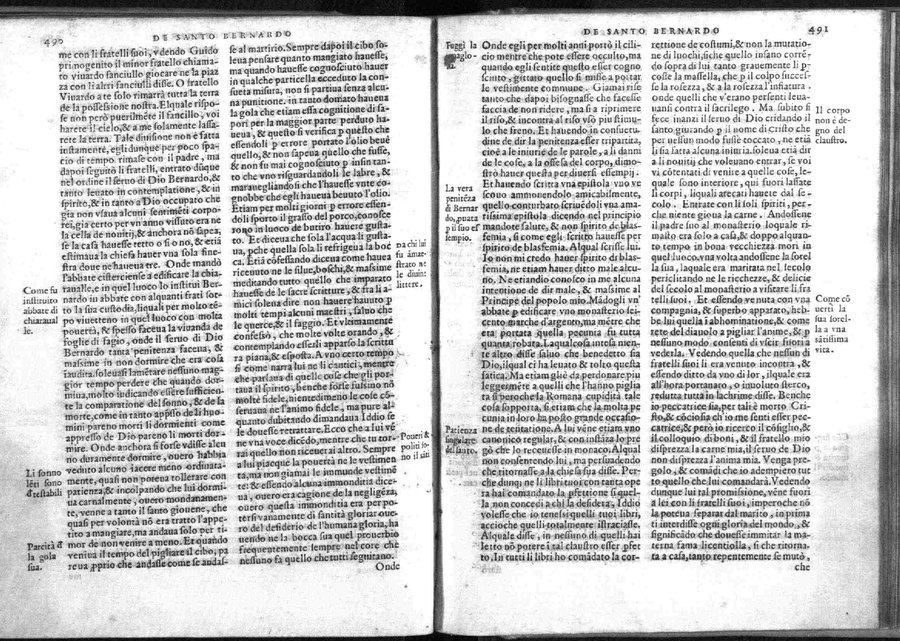 490
DE SANTO BERNARDO
me con li fratelli suoi, vdendo Guido
primogenito il minor fratello chiama-
to viuardo fanciullo giocare ne la piaz
za con li altri fanciulli disse. O fratello
Viuardo a te solo rimarrà tutta la terra
de la possessione nostra. Elquale rispo-
se non però puerilmēte il fancillo, voi
harete il cielo, & a me solamente lassa-
rete la terra. Tale diuisione non è fatta
instamente, egli dunque per poco spa-
cio di tempo rimase con il padre, ma
dapoi seguitò li fratelli, entrato dūque
nel ordine il seruo di Dio Bernardo, &
tanto leuato in contemplatione, & in
spirito, & in tanto a Dio occupato che
gia non vsaua alcuni sentimēti corpo-
rei, gia certo per vn anno vissuto era ne
la cella de nouitij, & anchora nō sapea,
se la casa hauesse retto o si o no, & etiā
estimaua la chiesa hauer vna sola fine-
stra doue ne haueua tre. Onde mandò
l'abbate cisterciense a edificare la chia-
raualle, e in quel luoco lo instituì Ber-
nardo in abbate con alquanti frati sot-
to la sua custodia, liquali per molto tē-
po viuetteno in quel luoco con molta
pouertà, & spesso faceua la viuanda de
foglie di fagio, onde il seruo di Dio
Bernardo tanta penitenza faceua, &
massime in non dormire che era cosa
inaudita. soleuasi lamētare nessuno mag-
gior tempo perdere che quando dor-
miua, molto iudicando essere sufficien-
te la comparatione del sonno, & de la
morte, come in tanto apisso de li huo-
mini pareno morti li dormienti come
appresso de Dio pareno li morti dor-
mire. Onde anchora si forse vdisse alcu
no duramente dormire, ouero habbia
veduto alcuno iacere meno ordinata-
mente, quasi non poteua tollerare con
patienza, & incolpando che lui dormi-
ua carnalmente, ouero mondanamen-
te, venne a tanto il santo giouene, che
quasi per volontà nō era tratto l'appe-
tito a mangiare, ma andaua solo per ti-
mor de non venire a meno. Et quando
veniua il tempo del pigliare il cibo, pa
reua ꝓprio che andasse come se andas-
Come fu
instituito
abbate di
chiaraual
le.
Li sonno
lēti sono
d'testabili
Parcità d'
la gola
sua.
se al martirio. Sempre dapoi il cibo so-
leua pensare quanto mangiato hauesse,
ma quando hauesse cognosciuto hauer
in qualche particella ecceduto la con-
sueta misura, non si partiua senza alcu-
na punitione. in tanto domato haueua
la gola che etiam essa cognitione di sa-
pori per la maggior parte perduto ha-
neua, & questo si verifica ꝑ questo che
essendoli ꝑ errore portato l'olio beuè
quello, & non sapeua quello che fusse,
& non fu mai cognosciuto ꝑ insin tan-
to che vno risguardandoli le labre, &
marauegliandosi che l'hauesse vnte co-
gnobbe che egli haueua beuuto l'olio.
Etiam per molti giorni ꝑ errore essen-
doli sporto il grasso del porco, conosce
rono in luoco de butiro hauere gusta-
to. Et diceua che sola l'acqua li gusta-
ua, ꝑche quella sola li refrigeua la bocc
a. Etiā cōfessando diceua come hauea
riceuuto ne le silue, boschi, & massime
meditando tutto quello che imparato
hauesse de le sacre scritture, & fra li a-
mici solena dire non hauere hauuto ꝑ
molti tempi alcuni maestri, saluo che
le querce, & il faggio. Et vltimamente
confessò, che molte volte orando, &
contemplando esserli apparso la scrittu
ra piana, & esposta. A vno certo tempo
si come narra lui ne li cantici, mentre
che parlaua di quelle cose che gli por-
taua il spirito, benche forse fussino nō
molte fidele, nientedimeno le cose cō-
seruaua ne l'animo fidele, ma pure al-
quanto dubitando dimandaua Iddio se
le douesse retrattare. Ecco che a lui vē
ne vna voce dicēdo, mentre che tu tor-
rai quello non riceuerai altro. Sempre
a lui piacque la pouertà ne le vestimen
ta, ma non giamai le immunde vestimē
te: & essendo alcuna immonditia dice-
ua, ouero era cagione de la negligēza,
ouero questa immonditia era per por-
tersi vanamente di santità gloriar ouer
ro del desiderio de l'humana gloria, ha
uendo ne la bocca sua quel prouerbio
frequentemente sempre nel core chè
nessuno fa quello che tutti seguitano.
Onde
na chi lui
fu āmae
strato ne
le diuine
littere.
Pouerì &
politi fo-
no il siti
DE SANTO BERNARDO
491
Fuggì la
Onde egli per molti anni portò il cili-
cio mentre che pote essere occulto, ma
quando egli sentite questo esser cogno
sciuto, gittato quello si misse a portar
le vestimente commune. Giamai rise
tanto che dapoi bisognasse che facesse
faccia de non ridere, ma si a riprimere
il riso, & incontra al riso vsò piu stimu-
lo che freno. Et hauendo in consuetu-
dine de dir la penitenza esser tripartita,
cioè a le iniurie de le parole, a li danni
de le cose, a la offesa del corpo, dimo-
strò hauer questa per diuersi essempij.
Et hauendo scritta vna epistola vno ve
scouo ammonendolo amicabilmente,
quello conturbato scriuēdoli vna ama-
rissima epistola dicendo nel principio
mandote salute, & non spirito de blas-
femia, si come egli scritto hauesse per
spirito de blasfemia. Alqual scrisse lui.
Io non mi credo hauer spirito di blas-
femia, ne etiam hauer ditto male alcu-
no. Ne etiandio conosco in me alcuna
intentione de dir male, & massime al
Principe del popolo mio. Mādogli vn'
abbate ꝑ edificare vno monasterio sei-
cento marche d'argento, ma mētre che
era portata quella pecunia fu tutta
quanta robata. Laqual cosa intesa nien-
te altro disse saluo che benedetto sia
Dio, ilqual ci ha leuato & tolto questa
fatica. Ma etiam gliè da perdonare piu
leggermēte a quelli che l'hanno piglia
ta si peroche la Romana cupidità tale
cosa sopporta, si etiam che la molta pe
cunia in loro ha posto grande occasio-
ne de tētatione. A lui vēne etiam vno
canonico regular, & con instāza lo pre
gò che lo receuesse in monaco. Alqual
non consentendo lui, ma persuadendo
che ritornasse a la chiesa sua disse. Per-
che dunque ne li libri tuoi con tanta ope
ra hai comandato la ꝑfettione si quel-
la non concedi a chi la desidera, Iddio
volesse che io tenessi quelli tuoi libri,
accioche quelli totalmente istraciasse.
Alquale disse, in nessuno di quelli hai
letto nō potere i tal claustro esser ꝑfet
to. In tutti li libri ho comādato la cor-
La vera
penitēza
di Bernar
do, puata
ꝑ il suo es
sempio.
Patienza
singulare
del santo.
rettione de costumi, & non la mutatio-
ne di luochi, sicche quello insano corrē-
do sopra di lui tanto grauemente li ꝑ
cosse la massella, che ꝑ il colpo succes-
se la rosezza, & a la rosezza l'infiatura.
onde quelli che v'erano persenti leua-
uansi contra il sacrilego. Ma subito si
fece inanzi il seruo di Dio cridando il
santo giurando ꝑ il nome di Cristo che
per nessun modo fusse toccato, ne etiā
li sia fatta alcuna iniuria. soleua etiā dir
a li nouitij che voleuano entrar, se voi
vi cōtentati di venire a quelle cose, le-
quale sono interior, qui fuori lassate
li corpi, liquali arecati hauete dal se-
colo. Entrate con li soli spiriti, per-
che niente gioua la carne. Andossene
il padre suo al monasterio loquale ri-
masto era solo a casa, & doppo alquan-
to tempo in bona vecchiezza morì in
quel luoco. vna volta andossene la sorel
la sua, laquale era maritata nel secolo
periclitando ne le ricchezze, & delicie
del secolo al monasterio a visitare li fra
telli suoi. Et essendo venuta con vna
compagnia, & superbo apparato, heb-
be lui quella i abhominatione, & come
rete del diauolo a pigliar l'anime, & ꝑ
nessuno modo consenti di vscir fuori a
vederla. Vedendo quella che nessun di
fratelli suoi li era venuto incontra, &
essendo ditto da vno di lor, ilquale era
all'hora portanaro, o inuoluto sterco,
redutta tutta in lachrime disse. Benche
io peccatrice sia, per tali è morto Cri-
sto, & cōciosia ch'io me senti esser pec-
catrice, & però io ricerco il cōsiglio, &
il colloquio di boni, & il fratello mio
disprezza la carne mia, il seruo de Dio
non disprezza l'anima mia. Venga pre-
golo, & comādi che io adempro tut-
to quello che lui comandarà. Vedendo
dunque lui tal promissione, vēne fuori
a lei con li fratelli suoi, imperoche nō
la poteua separar dal marito, in prima
ti interdisse ogni gloria del mondo, &
significādo che douesse immitar la ma-
terna fama licentiosla, si che ritorna-
ta a casa, tanto repentemente se mutò,
che
Il corpo
non è de-
gno del
claustro.
Come cō
uertì la
sua sorel-
la a vna
sātissima
vita.